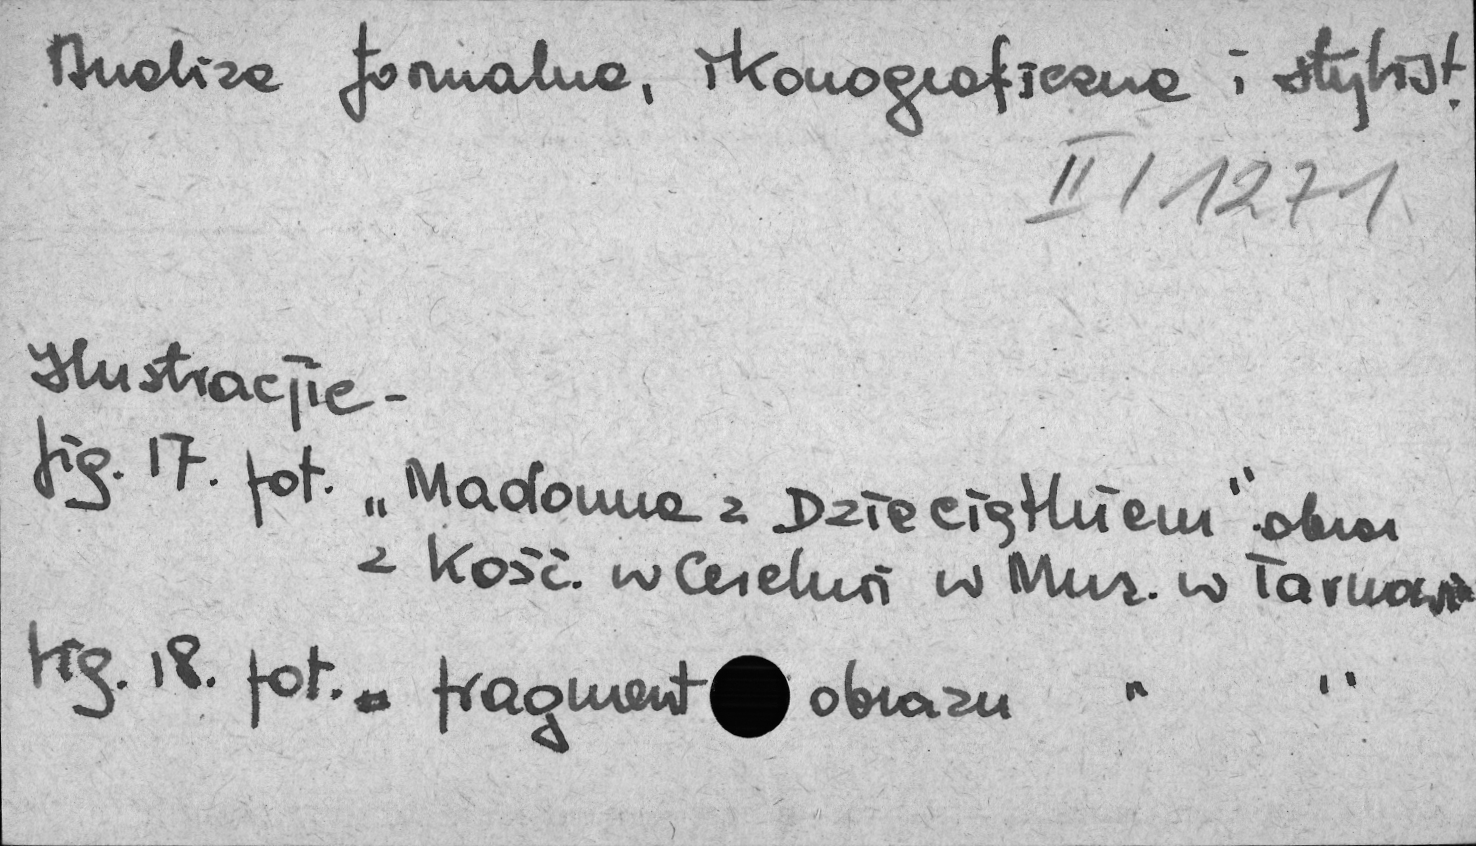 Analiza formalna, ikonograficzna i stylist.
II / 1271
Ilustracjie -
fig. 17. fot. „Madonna z Dzieciątkiem" obraz
z Kość. w Cerekwi w Muz. w Tarnowie
fig. 18. fot. = fragment obrazu " "